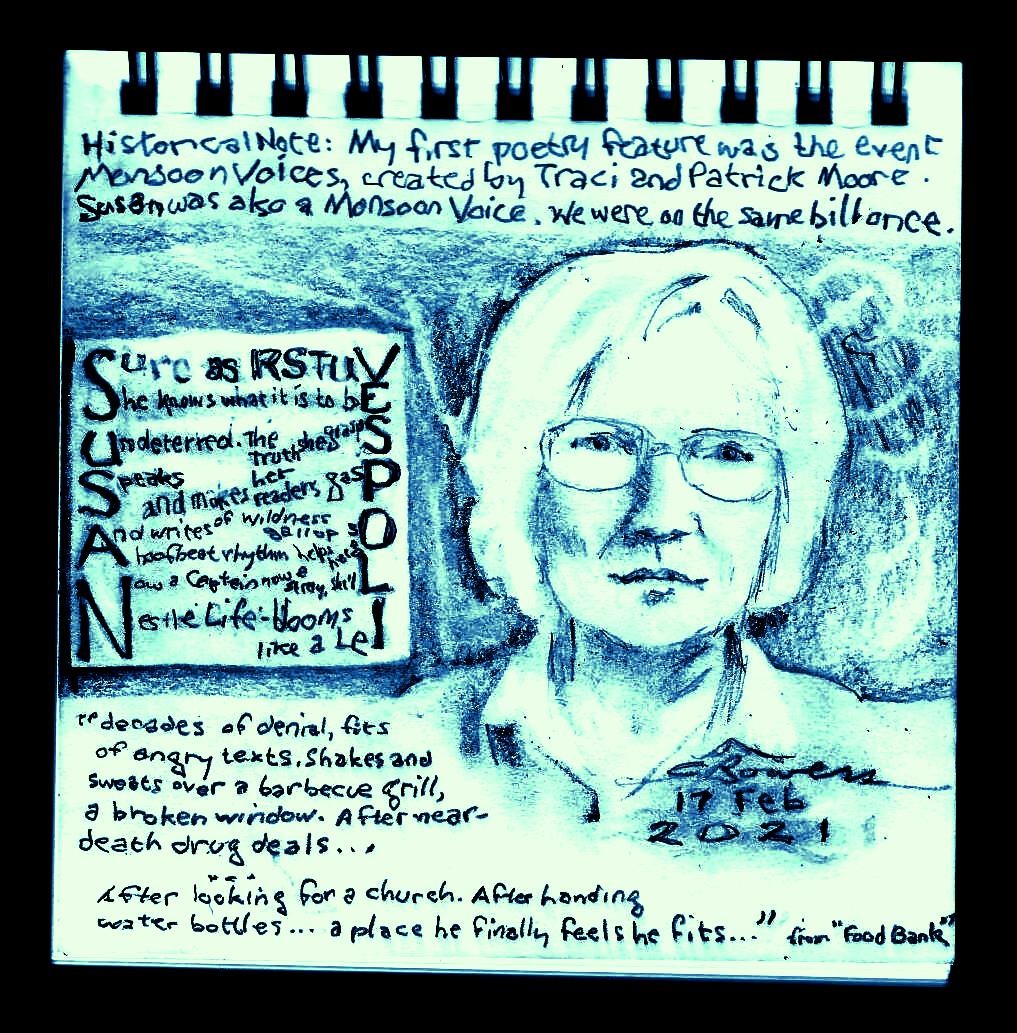 Historical Note: My first poetry feature was the event
Monsoon Voices, created by Traci and Patrick Moore.
Susan was also a Monsoon Voice. We were on the same bill once.
Sure as RSTUV
She knows what it is to bE
Undeterred. The Truth she graspS
Speaks her
and makes readers gasP
And writes of wildness gallop
hoofbeat rhythm helps
Now a Captain now a stray, she'll
Nestle Life-blooms
like a LeI
"decades of denial, fits
of angry texts. Shakes and
sweats over a barbecue grill,
a broken window. After near-
death drug deals...
After looking for a church. After handing
water bottles... a place he finally feels he fits..." from "Food Bank"
17 Feb
2021